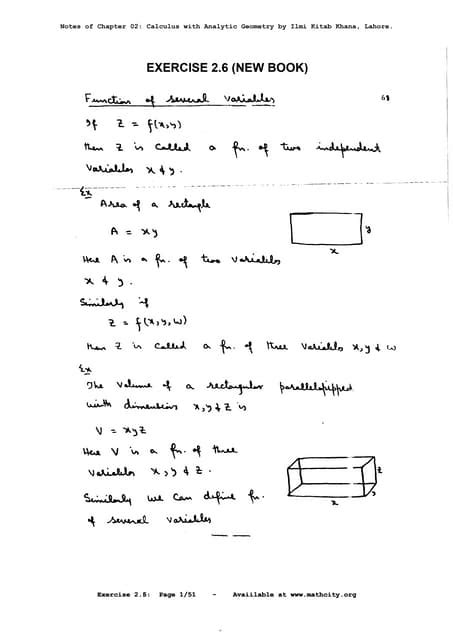 Notes of Chapter 02: Calculus with Analytic Geometry by Ilmi Kitab Khana, Lahore.
EXERCISE 2.6 (NEW BOOK)
Function of several variables
If Z = f(x,y)
then Z is called a fn. of two independent
variables x & y.
Ex
Area of a rectangle
A = xy
y
x
Here A is a fn. of two variables
x & y.
Similarly if
Z = f(x,y,w)
then Z is called a fn. of three variables x,y & w
Ex
The volume of a rectangular parallelepipped
with dimentions x,y & z is
V = xyz
Here V is a fn. of three
variables x,y & z.
z
y
x
Similarly we can define fn.
of several variables
Exercise 2.5: Page 1/51 - Available at www.mathcity.org